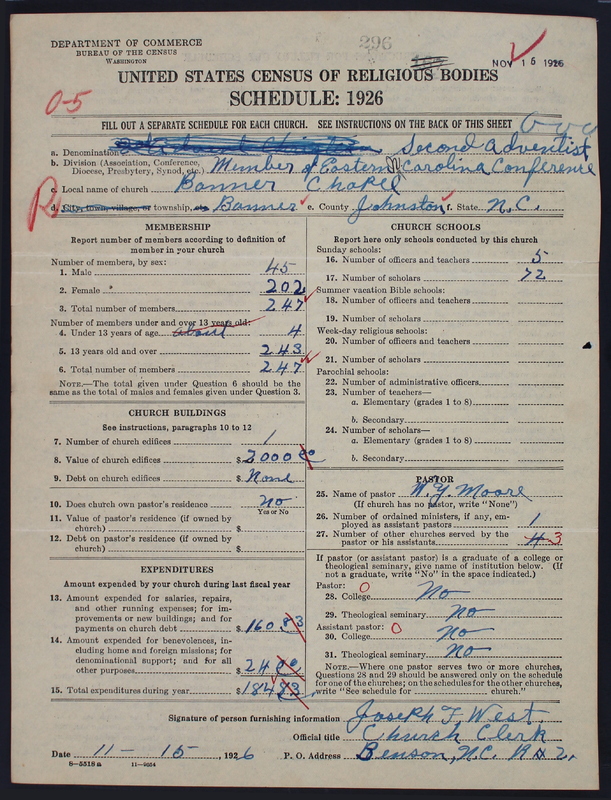 DEPARTMENT OF COMMERCE
BUREAU OF THE CENSUS
WASHINGTON
296
NOV 15 1926
UNITED STATES CENSUS OF RELIGIOUS BODIES
SCHEDULE: 1926
0-5
FILL OUT A SEPARATE SCHEDULE FOR EACH CHURCH. SEE INSTRUCTIONS ON THE BACK OF THIS SHEET
a. Denomination Second Adventist
b. Division (Association, Conference, Diocese, Presbytery, Synod, etc.) Member of Eastern N Carolina Conference
c. Local name of church Banner Chapel
d. City, town, village, or township, etc. Banner e. County Johnston f. State N.C.
MEMBERSHIP
Report number of members according to definition of
member in your church
Number of members, by sex:
1. Male 45
2. Female 202
3. Total number of members 247
Number of members under and over 13 years old:
4. Under 13 years of age about 4
5. 13 years old and over 243
6. Total number of members 247
NOTE.—The total given under Question 6 should be the
same as the total of males and females given under Question 3.
CHURCH BUILDINGS
See instructions, paragraphs 10 to 12
7. Number of church edifices 1
8. Value of church edifices $ 3000 00
9. Debt on church edifices $ None
10. Does church own pastor's residence no
Yes or No
11. Value of pastor's residence (if owned by
church) $
12. Debt on pastor's residence (if owned by
church) $
EXPENDITURES
Amount expended by your church during last fiscal year
13. Amount expended for salaries, repairs,
and other running expenses; for im-
provements or new buildings; and for
payments on church debt $ 160 83
14. Amount expended for benevolences, in-
cluding home and foreign missions; for
denominational support; and for all
other purposes $ 24 00
15. Total expenditures during year $ 184 83
CHURCH SCHOOLS
Report here only schools conducted by this church
Sunday schools:
16. Number of officers and teachers 5
17. Number of scholars 72
Summer vacation Bible schools:
18. Number of officers and teachers
19. Number of scholars
Week-day religious schools:
20. Number of officers and teachers
21. Number of scholars
Parochial schools:
22. Number of administrative officers
23. Number of teachers—
a. Elementary (grades 1 to 8)
b. Secondary
24. Number of scholars—
a. Elementary (grades 1 to 8)
b. Secondary
PASTOR
25. Name of pastor W. Y. Moore
(If church has no pastor, write "None")
26. Number of ordained ministers, if any, em-
ployed as assistant pastors 1
27. Number of other churches served by the
pastor or his assistants 4 3
If pastor (or assistant pastor) is a graduate of a college or
theological seminary, give name of institution below. (If
not a graduate, write "No" in the space indicated.)
Pastor: 0
28. College No
29. Theological seminary No
Assistant pastor: 0
30. College No
31. Theological seminary No
NOTE.—Where one pastor serves two or more churches,
Questions 28 and 29 should be answered only on the schedule
for one of the churches; on the schedules for the other churches,
write "See schedule for church."
Signature of person furnishing information Joseph T. West
Official title Church Clerk
Date 11-15, 1926 P. O. Address Benson, N.C. R 2.
8-5518 a 11-9654